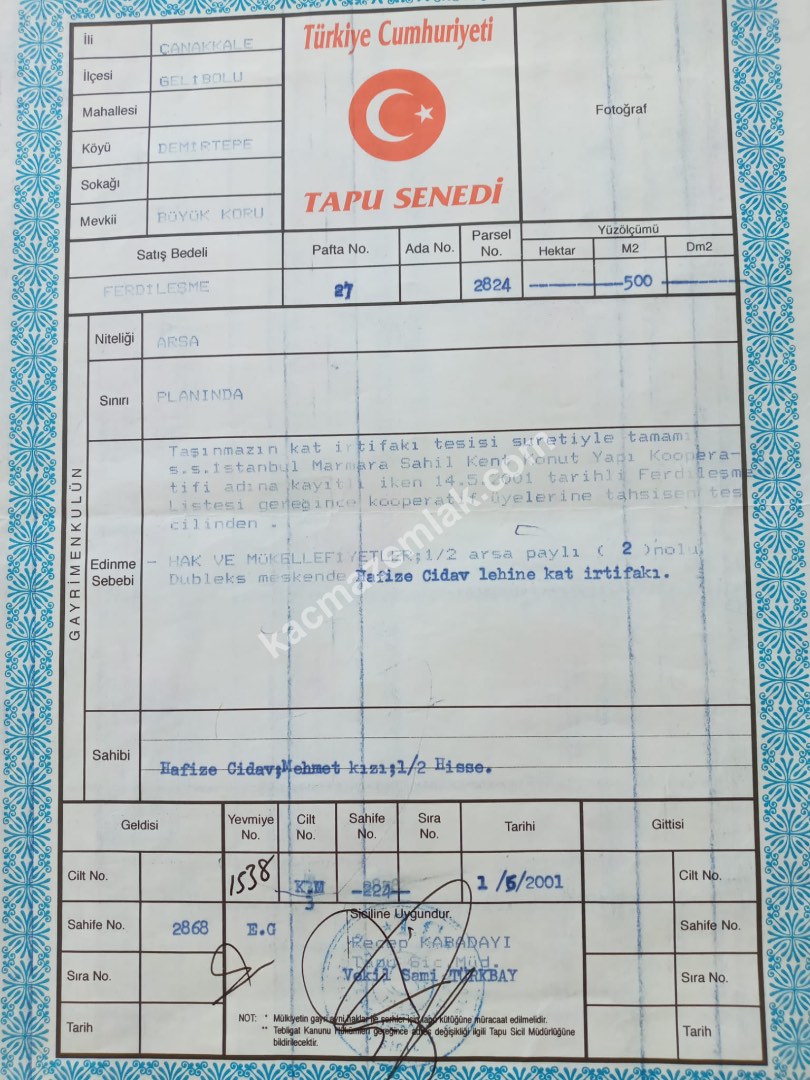 İli ÇANAKKALE
İlçesi GELİBOLU
Mahallesi
Köyü DEMİRTEPE
Sokağı
Mevkii BÜYÜK KORU
Türkiye Cumhuriyeti
TAPU SENEDİ
Fotoğraf
Satış Bedeli
Pafta No.
Ada No.
Parsel No.
Yüzölçümü
Hektar
M2
Dm2
FERDİLEŞME 27 2824 500
GAYRİMENKULÜN
Niteliği ARSA
Sınırı PLANINDA
Edinme Sebebi
Taşınmazın kat irtifakı tesisi suretiyle tamamı
s.s.İstanbul Marmara Sahil Kent Konut Yapı Koopera-
tifi adına kayıtlı iken 14.5.2001 tarihli Ferdileşme
Listesi gereğince kooperatif üyelerine tahsisen tes
cilinden .
- HAK VE MÜKELLEFİYETLER;1/2 arsa paylı ( 2 )nolu
Dubleks meskende Hafize Cidav lehine kat irtifakı.
Sahibi
Hafize Cidav;Mehmet kızı;1/2 Hisse.
kacmazemlak.com
Geldisi
Yevmiye No.
Cilt No.
Sahife No.
Sıra No.
Tarihi
Gittisi
Cilt No. 1538 K.M 3 -224- 1 /6/2001 Cilt No.
Sahife No. 2868 E.G Siciline Uygundur. Sahife No.
Recep KABADAYI
Tapu Sic Müd.
Vekil Sami TÜRKBAY
Sıra No. Sıra No.
Tarih Tarih
NOT: * Mülkiyetin gayri ayni haklar ile şerhler için tapu kütüğüne müracaat edilmelidir.
** Tebligat Kanunu Hükümleri gereğince adres değişikliği ilgili Tapu Sicil Müdürlüğüne
bildirilecektir.